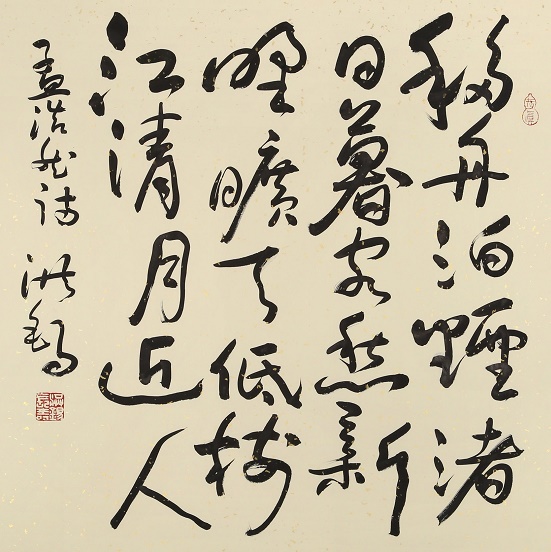 移舟泊煙渚
日暮客愁新
野曠天低樹
江清月近人
孟浩然詩 洪